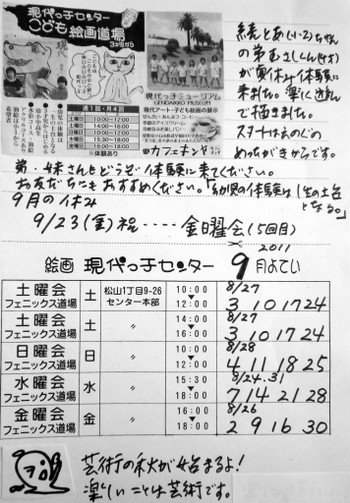 現代っ子センター
こども絵画道場
3才位から
週1回・月4回
土曜日 10:00~12:00
土曜日 14:00~16:00
日曜日 10:00~12:00
水曜日 15:30~18:00
金曜日 16:00~18:00
※体験あり
現代っ子ミュージアム
GENDAIKKO MUSEUM
現代アート・子ども絵画の展示
カフェチンキ
の弟むさしくん
が夏休み体験に
来ました。楽しく遊ん
で描きました。
スタートはえのぐの
めちゃがきからです。
弟・妹さんもどうぞ体験に来てください。
お友だちにもおすすめください。「幼児の体験は一生の土台
となる。」
9月の休み
9/23(金)祝----金曜会(5回目)
2011
絵画 現代っ子センター 9月よてい
土曜会 フェニックス道場 土 松山1丁目9-26 センター本部 10:00 ~ 12:00 8/27 3 10 17 24
土曜会 フェニックス道場 土 〃 14:00 ~ 16:00 8/27 3 10 17 24
日曜会 フェニックス道場 日 〃 10:00 ~ 12:00 8/28 4 11 18 25
水曜会 フェニックス道場 水 〃 15:30 ~ 18:00 8/24.31 7 14 21 28
金曜会 フェニックス道場 金 〃 16:00 ~ 18:00 8/26 2 9 16 30
芸術の秋が始まるよ!
楽しいことは芸術です。